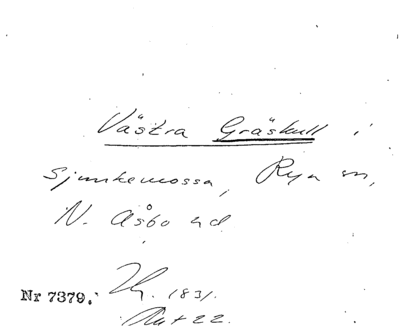 Västra Gräskull i
Sjunkemossa, Rya sn,
N. Åsbo hd
Nr 7379. 1831.
22.